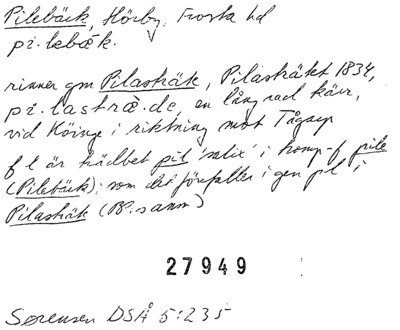 Pilebäck, Hörby, Frosta hd
pi.lebæk.
rinner gm Pilasträk, Pilasträket 1834,
pi.lastræ.de, en lång rad kärr,
vid Köinge i riktning mot Tågarp
f l är trädbet pil 'salix' i komp-f pile
(Pilebäck); som det förefaller i gen pl i
Pilasträk
27949
Sørensen DSÅ 5:235